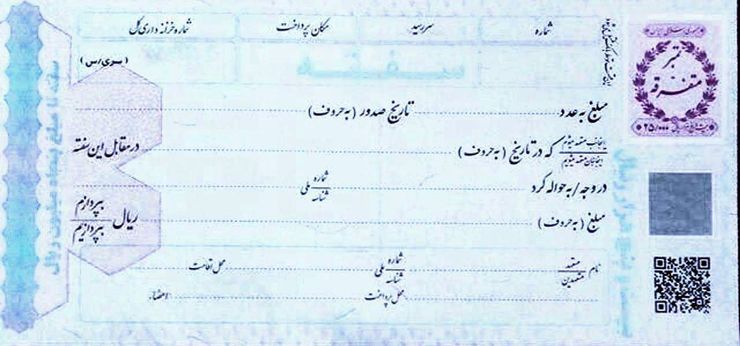 شماره
سررسید
مکان پرداخت
شماره خزانه داری کل
سفته
(سری/س)
جمهوری اسلامی ایران
تمبر
متفرقه
۲۵/۰۰۰
مبلغ به عدد تاریخ صدور (به حروف)
اینجانب متعهد میشوم
اینجانبان متعهد میشویم
که در تاریخ (به حروف) در مقابل این سفته
در وجه / به حواله کرد شماره ملی شناسه
مبلغ (به حروف) ریال بپردازم
بپردازیم
نام متعهد
متعهدین
شماره ملی شناسه
محل اقامت
محل پرداخت امضاء:
سفته تا مبلغ پنجاه میلیون ریال